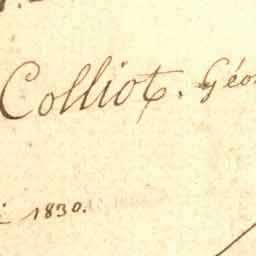 Colliot. Géo
1830.